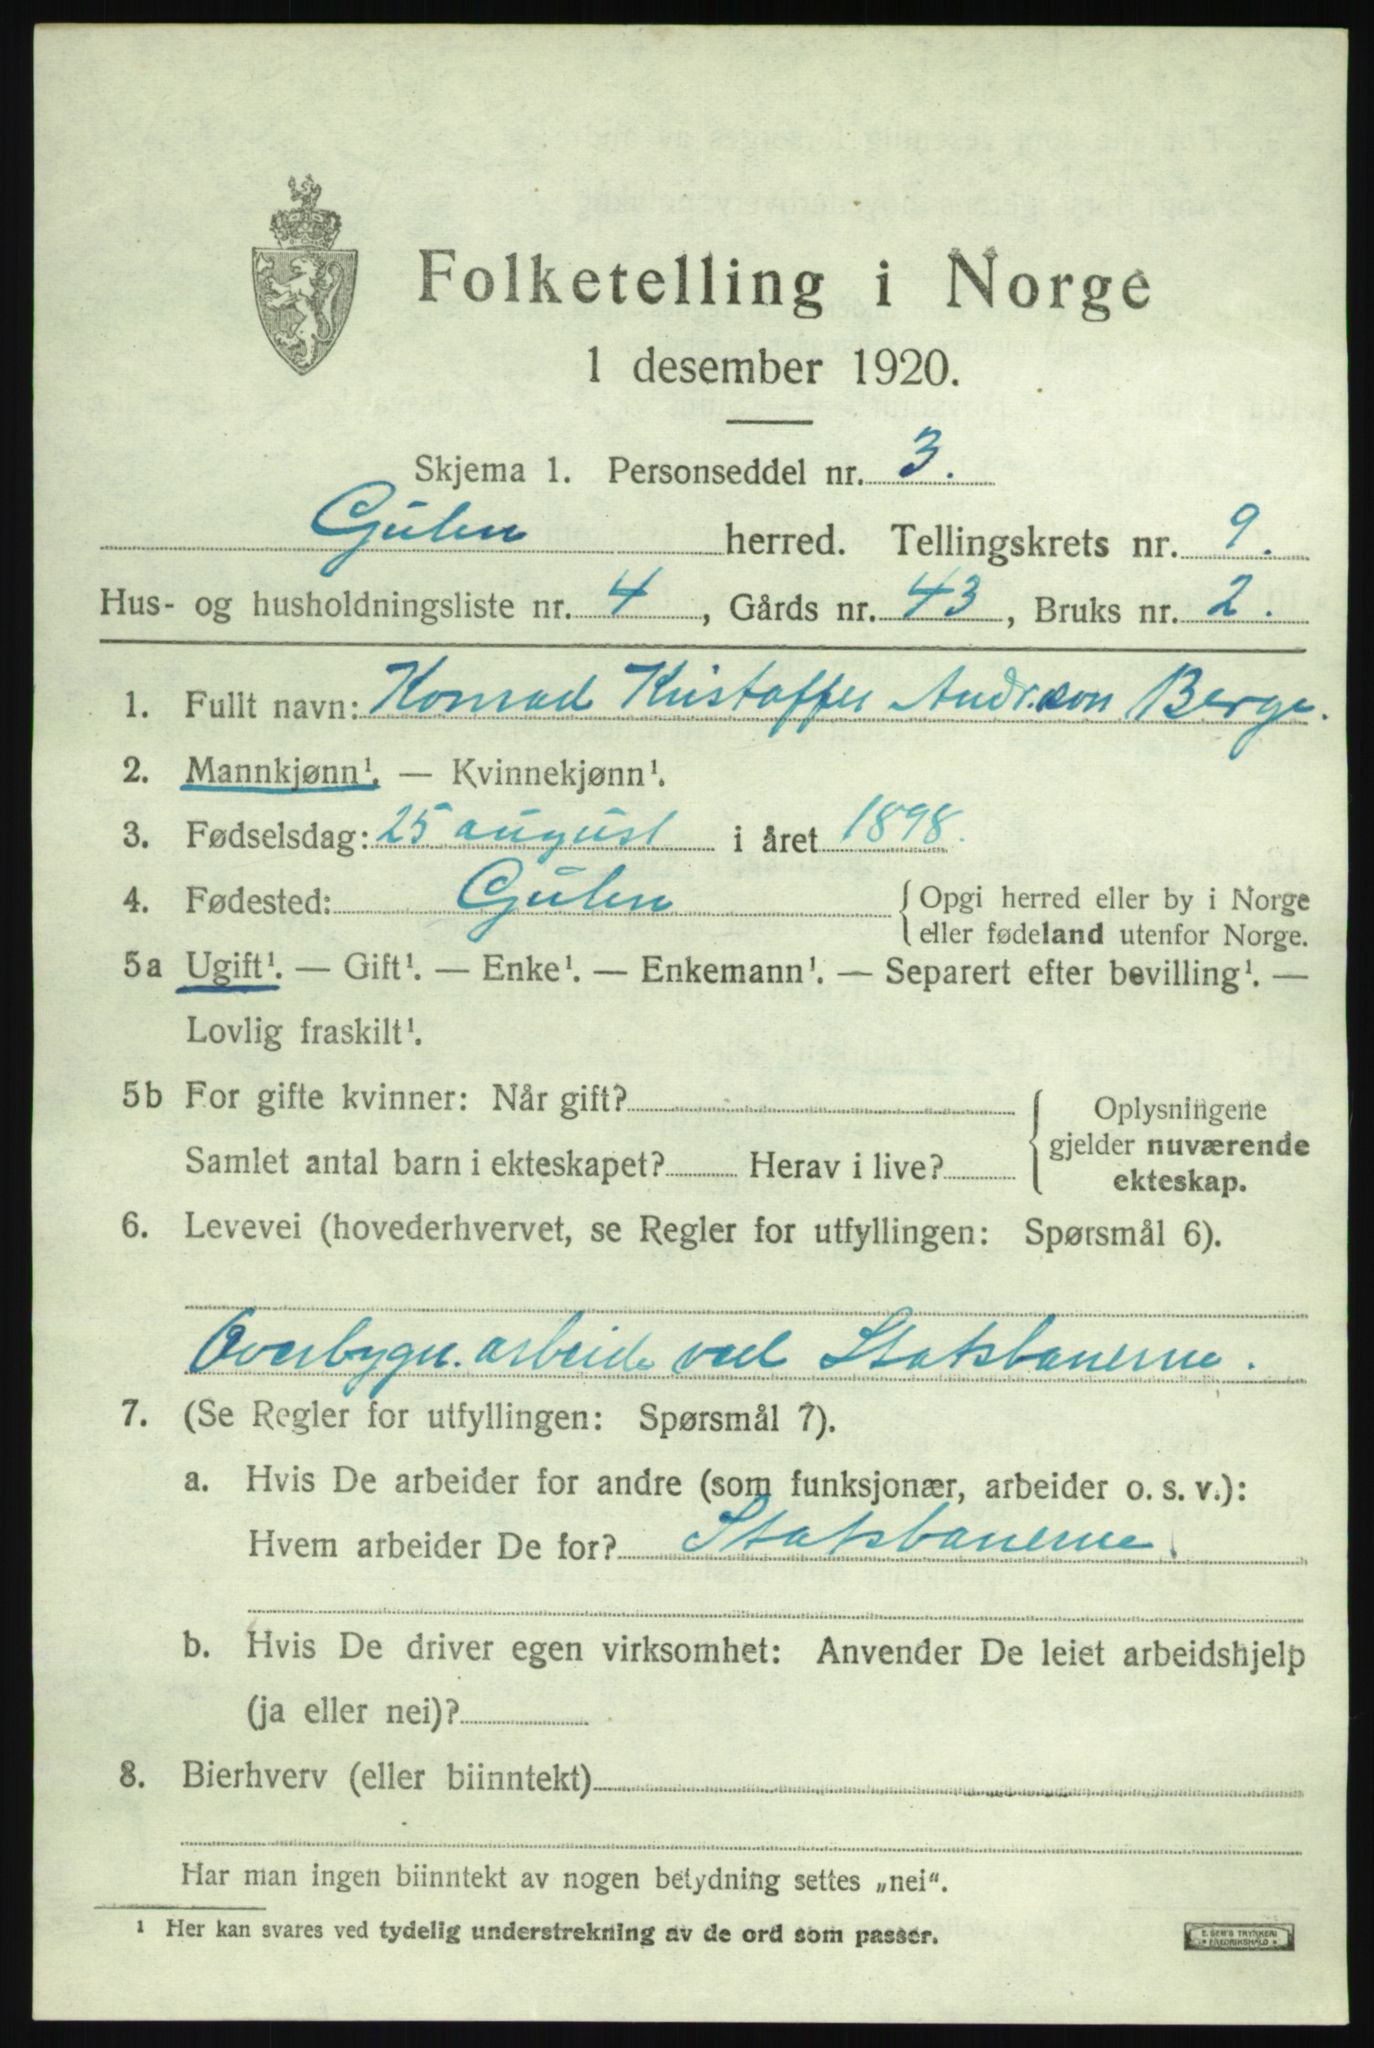 Folketelling i Norge
1 desember 1920.
Skjema 1. Personseddel nr. 3.
Gulen herred. Tellingskrets nr. 9.
Hus- og husholdningsliste nr. 4, Gårds nr. 43, Bruks nr. 2.
1. Fullt navn: Konrad Kristoffer Andr.son Berge.
2. Mannkjønn¹. — Kvinnekjønn¹.
3. Fødselsdag: 25 august i året 1898.
4. Fødested: Gulen { Opgi herred eller by i Norge
eller fødeland utenfor Norge.
5a Ugift¹. — Gift¹. — Enke¹. — Enkemann¹. — Separert efter bevilling¹. —
Lovlig fraskilt¹.
5b For gifte kvinner: Når gift?
Samlet antal barn i ekteskapet? Herav i live?
{ Oplysningene
gjelder nuværende
ekteskap.
6. Levevei (hovederhvervet, se Regler for utfyllingen: Spørsmål 6).
Overbygn. arbeide ved Statsbanerne.
7. (Se Regler for utfyllingen: Spørsmål 7).
a. Hvis De arbeider for andre (som funksjonær, arbeider o. s. v.):
Hvem arbeider De for? Statsbanerne.
b. Hvis De driver egen virksomhet: Anvender De leiet arbeidshjelp
(ja eller nei)?
8. Bierhverv (eller biinntekt)
Har man ingen biinntekt av nogen betydning settes „nei“.
¹ Her kan svares ved tydelig understrekning av de ord som passer.
E. SEM'S TRYKKERI
FREDRIKSHALD